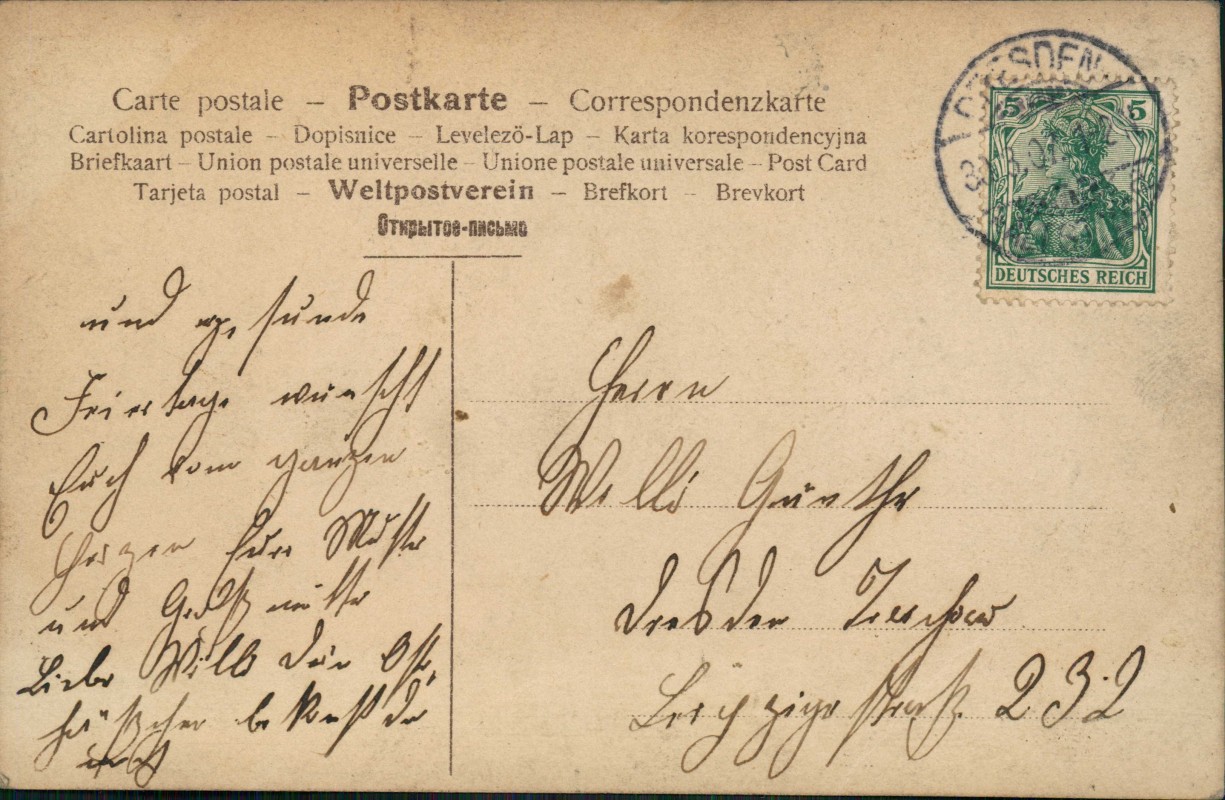 Carte postale – Postkarte – Correspondenzkarte
Cartolina postale – Dopisnice – Levelező-Lap – Karta korespondencyjna
Briefkaart – Union postale universelle – Unione postale universale – Post Card
Tarjeta postal – Weltpostverein – Brefkort – Brevkort
Открытое-письмо
DRESDEN
5 5
DEUTSCHES REICH
und gesunde
Feiertage wünscht
Euch vom ganzen
Herzen Eure Mutter
und Großmutter
Liebe Willi dein Oster
häschen bekomst du
noch
Herrn
Willi Günther
Dresden
Leipzigerstraß. 232